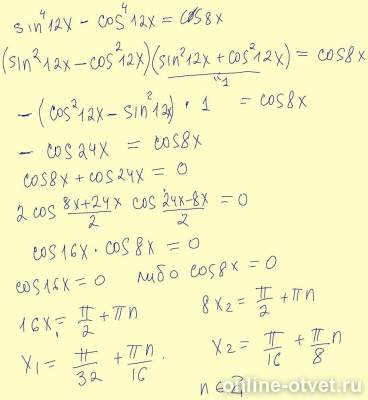 sin⁴12x - cos⁴12x = cos8x
(sin²12x - cos²12x)(sin²12x + cos²12x) = cos8x
"1
- (cos²12x - sin²12x) · 1 = cos8x
- cos24x = cos8x
cos8x + cos24x = 0
2 cos (8x+24x)/2 cos (24x-8x)/2 = 0
cos16x · cos8x = 0
cos16x = 0 либо cos8x = 0
16x₁ = π/2 + πn 8x₂ = π/2 + πn
x₁ = π/32 + πn/16 . x₂ = π/16 + π/8 n
n ∈ Z
online-otvet.ru